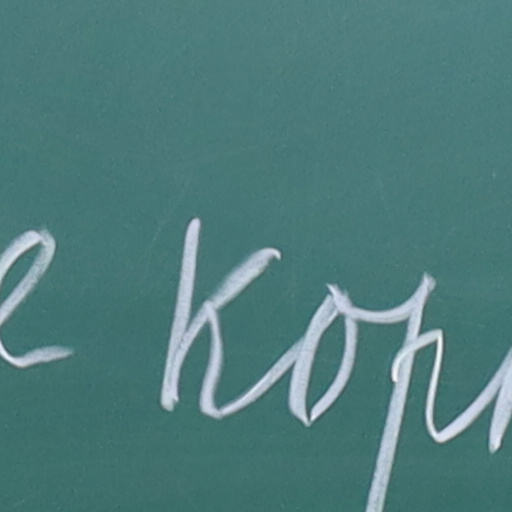 е кор